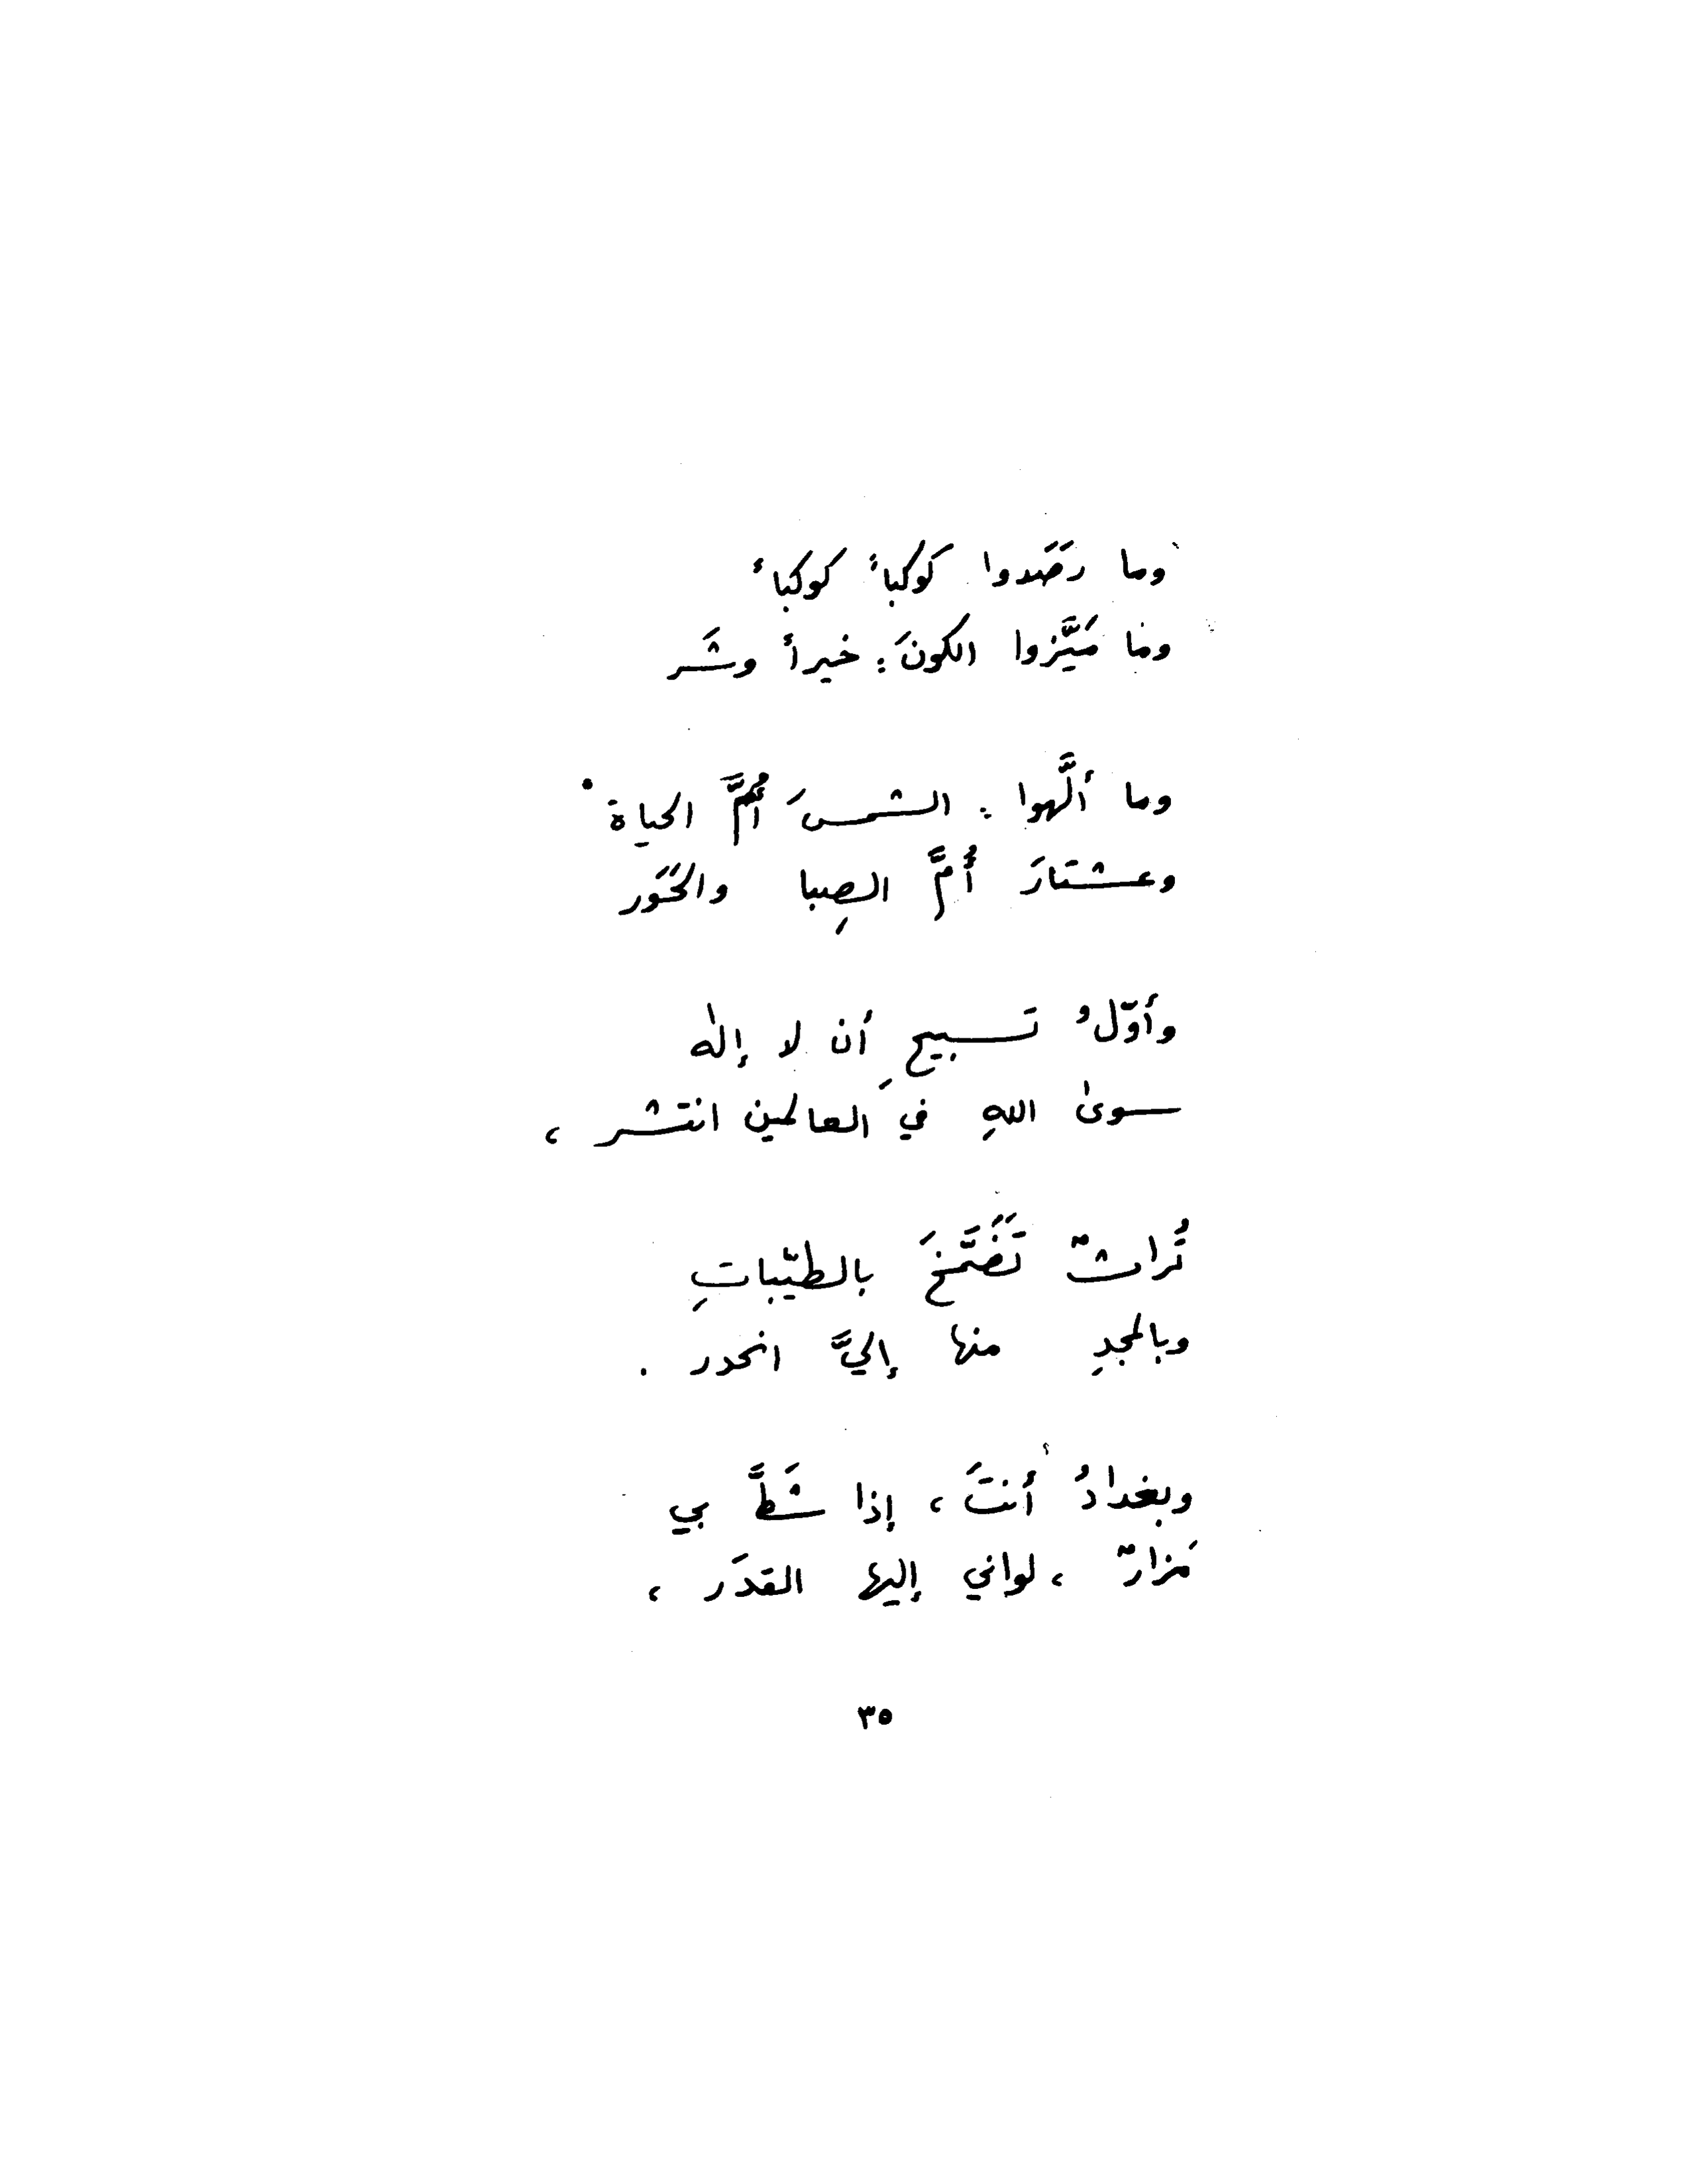 وما رَصَدوا كَوكباً كوكباً
وما مَيَّزوا الكونَ : خيراً وشَر
وما ألَّهوا : الشمسَ أُمَّ الحياة
وعشتارَ أُمَّ الصِبا والحَوَر
وأوّلُ تسبيحِ أن لا إلٰه
سوىٰ اللهِ في العالمين انتشر ،
تُراثٌ تَضَمَّخَ بالطيّباتِ
وبالمجدِ منها إليَّ انحدر .
وبغدادُ أنتَ ، إذا شَطَّ بي
مَزارٌ ، لواني إليها القدَر ،
٣٥